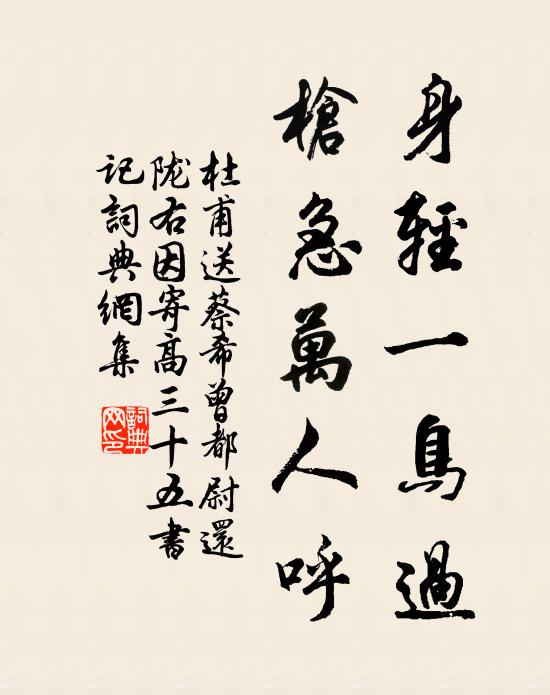 身輕一鳥過
槍急萬人呼
杜甫送蔡希曾都尉還
陇右因寄高三十五書
記詞典網集
詞典
网印